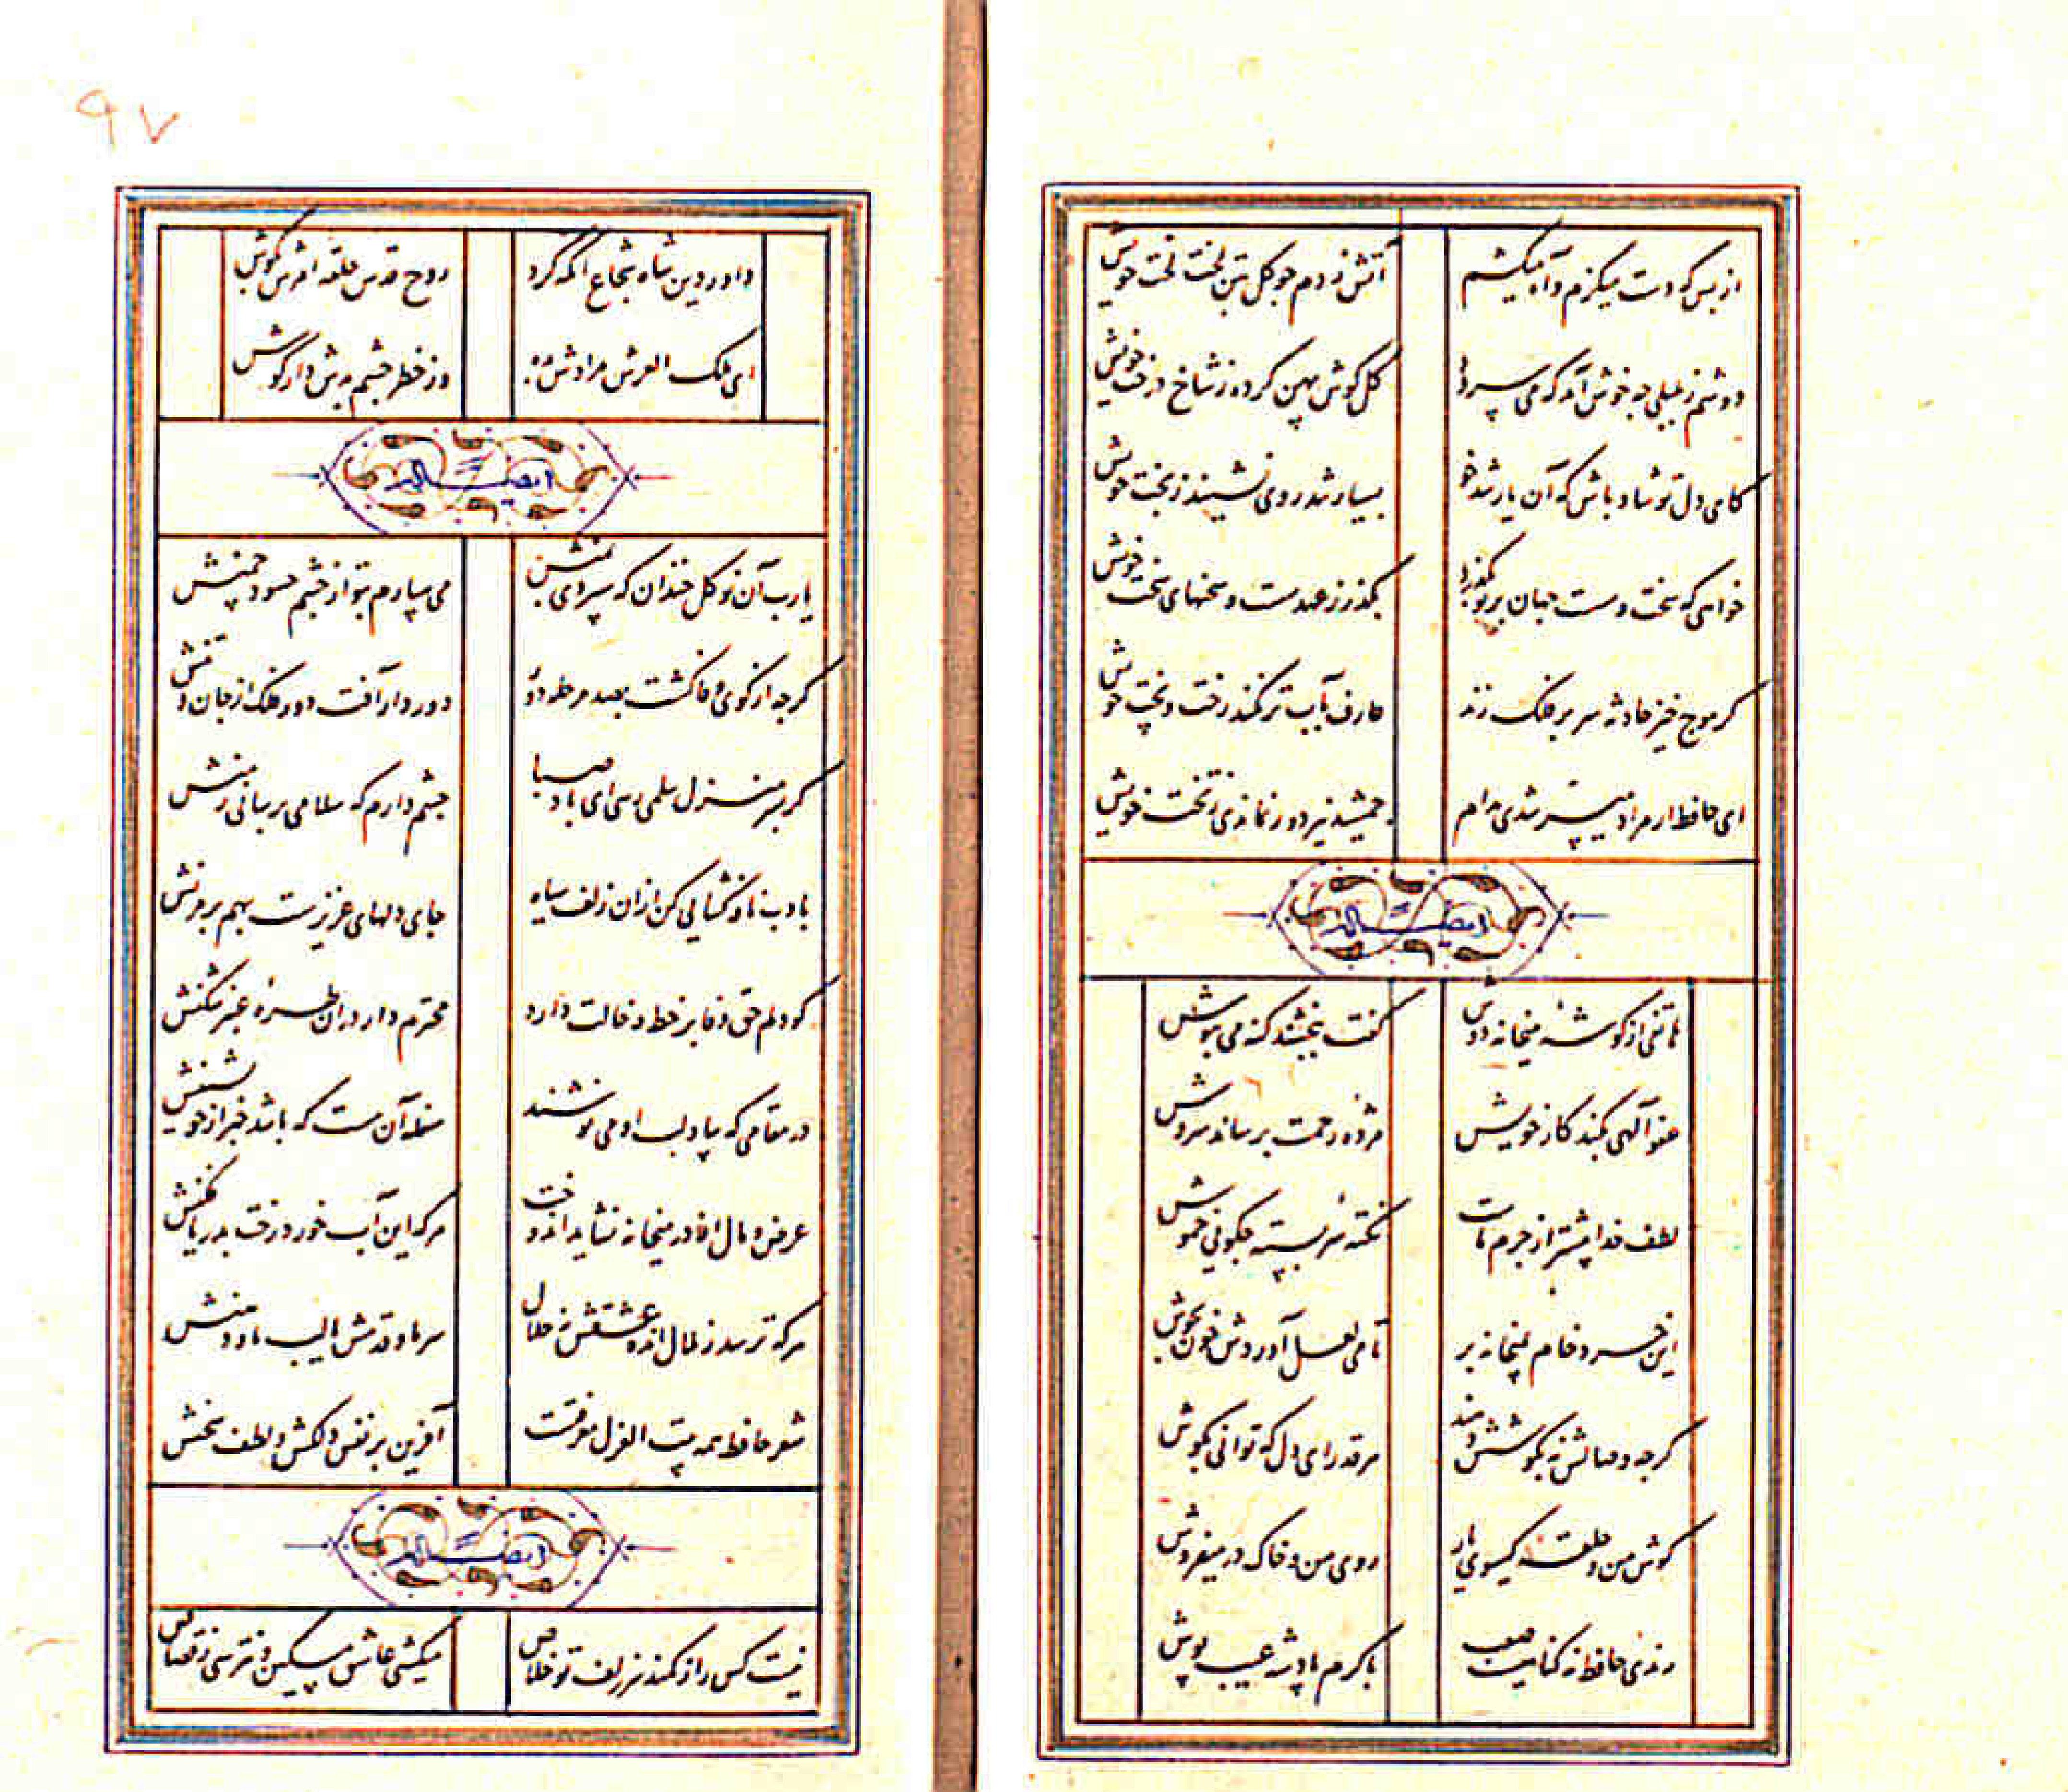 از بس که دست میکزم و آه میکشم
آتش زدم چو کل بتن لخت لخت خویش
دوشم ز بلبلی چه خوش آمد که می سرود
کل کوش پهن کرده ز شاخ درخت خویش
کای دل تو شاد باش که آن یار تندخو
بسیار تند روی نشیند ز بخت خویش
خواهی که سخت و سست جهان بر تو بکذرد
بکذر ز عهد سست و سخنهای سخت خویش
کر موج خیز حادثه سر بر فلک زند
عارف بآب تر نکند رخت و پخت خویش
ای حافظ ار مراد میسر شدی مدام
جمشید نیز دور نماندی ز تخت خویش
ایضاً له
هاتفی از کوشهٔ میخانه دوش
کفت ببخشند کنه می بنوش
عفو آلهی بکند کار خویش
مژده رحمت برساند سروش
لطف خدا بیشتر از جرم ماست
نکته سربسته چکوئی خموش
این خرد خام بمیخانه بر
تا می لعل آوردش خون بجوش
کرچه وصالش نه بکوشش دهند
هر قدر ای دل که توانی بکوش
کوش من و حلقه کیسوی یار
روی من و خاک در میفروش
رندی حافظ نه کناهیست صعب
با کرم پادشه عیب پوش
۹۷
داور دین شاه شجاع آنکه کرد
روح قدس حلقه امرش بکوش
ای ملک العرش مرادش بده
وز خطر چشم بدش دار کوش
ایضاً له
یارب آن نو کل خندان که سپردی بمنش
می سپارم بتو از چشم حسود چمنش
کرچه از کوی وفا کشت بصد مرحله دور
دور دار آفت دور فلک از جان و تنش
کر بسرمنزل سلمی رسی ای باد صبا
چشم دارم که سلامی برسانی ز منش
بادب نافه کشایی کن از ان زلف سیاه
جای دلهای عزیزست بهم بر مزنش
کو دلم حق وفا بر خط و خالت دارد
محترم دار در ان طره عنبر شکنش
در مقامی که بیاد لب او می نوشند
سفله آن مست که باشد خبر از خویشتنش
عرض و مال از در میخانه نشاید اندوخت
هر که این آب خورد رخت بدریا فکنش
هر که ترسد ز ملال انده عشقش نه حلال
سر ما و قدمش یا لب ما و دهنش
شعر حافظ همه بیت الغزل معرفت
آفرین بر نفس دلکش و لطف سخنش
ایضاً له
نیست کس را ز کمند سر زلف تو خلاص
میکشی عاشق مسکین و نترسی ز قصاص